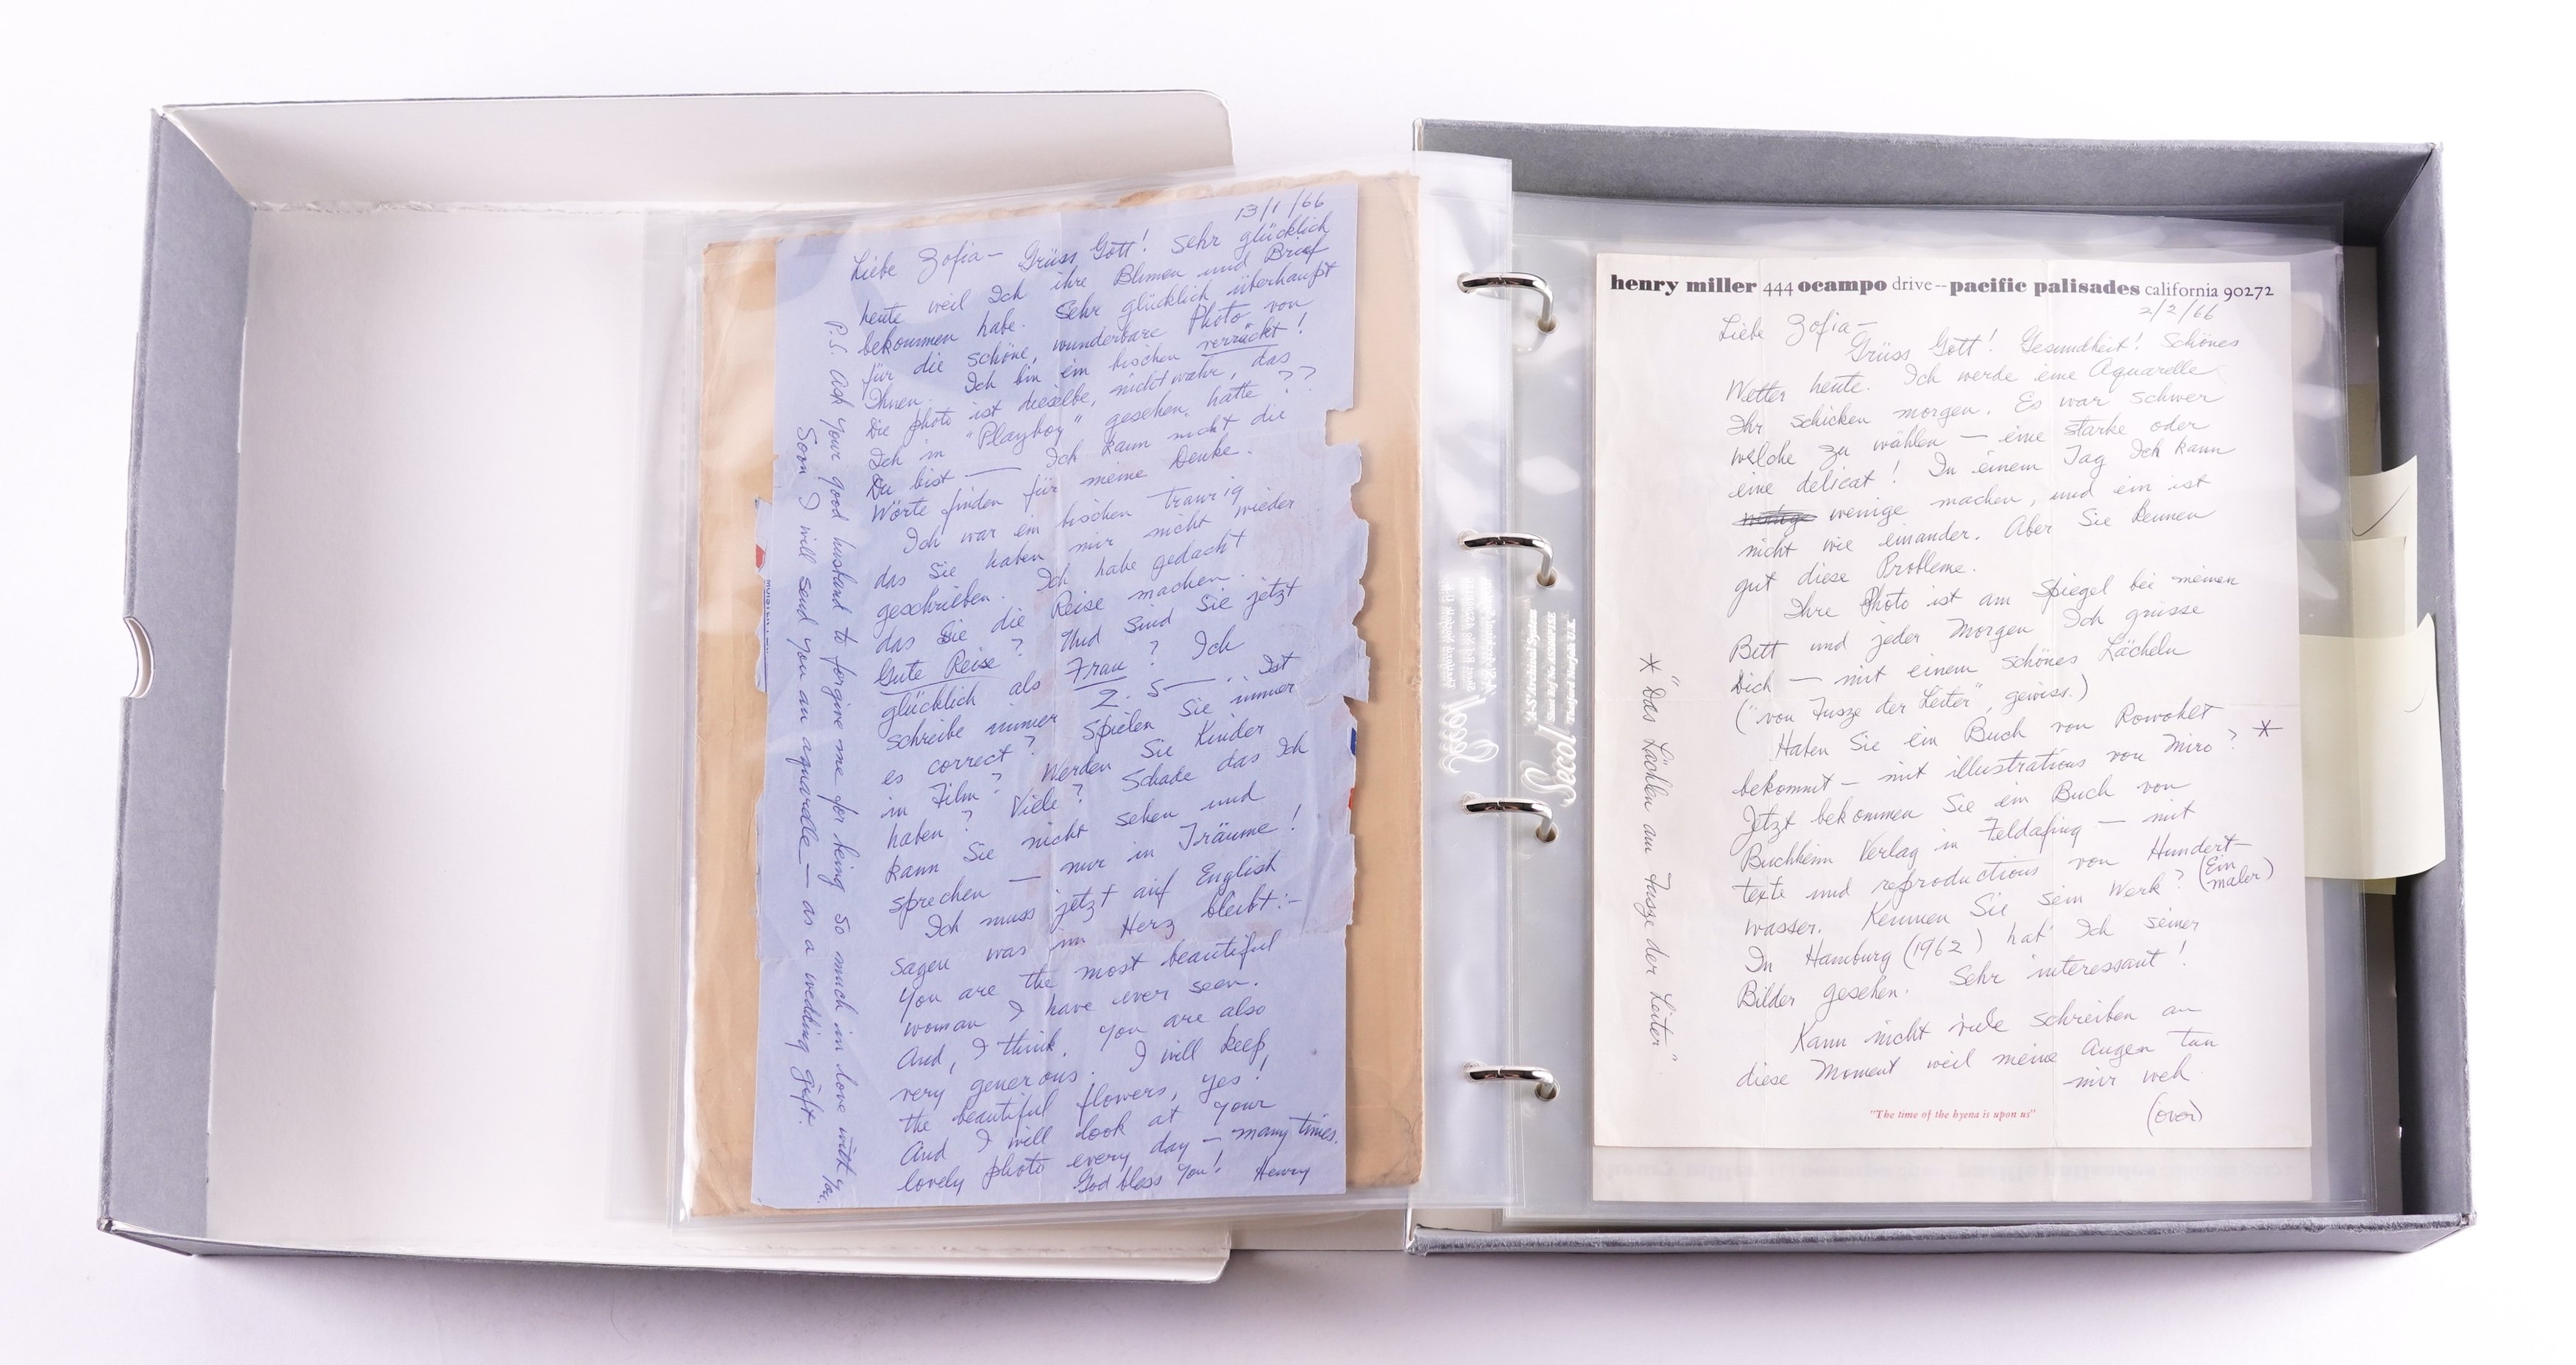 13/1/66
Liebe Zofia — Grüss Gott! Sehr glücklich
heute weil Ich ihre Blumen und Brief
bekommen habe. Sehr glücklich überhaupt
für die schöne, wunderbare Photo von
Ihnen. Ich bin ein bischen verrückt!
Die photo ist dieselbe, nicht wahr, das
Ich in "Playboy" gesehen hatte??
Du bist — Ich kann nicht die
Wörte finden für meine Denke.
Ich war ein bischen traurig
das Sie haben mir nicht wieder
geschrieben. Ich habe gedacht
das Sie die Reise machen.
Gute Reise? Und sind Sie jetzt
glücklich als Frau? Ich
schreibe immer Z. S—. Ist
es correct? Spielen Sie immer
in Film? Werden Sie Kinder
haben? Viele? Schade das Ich
kann Sie nicht sehen und
sprechen — nur in Träume!
Ich muss jetzt auf English
sagen was im Herz bleibt:-
You are the most beautiful
woman I have ever seen.
And, I think, you are also
very generous. I will keep
the beautiful flowers, yes!
And I will look at your
lovely photo every day — many times.
God bless you! Henry
P.S. Ask your good husband to forgive me for being so much in love with you.
Soon I will send you an aquarelle — as a wedding gift.
Secol
"A5" Archival System
henry miller 444 ocampo drive--pacific palisades california 90272
2/2/66
Liebe Zofia —
Grüss Gott! Gesundheit! Schönes
Wetter heute. Ich werde eine Aquarelle
Ihr schicken morgen. Es war schwer
welche zu wählen — eine starke oder
eine delicat! In einem Tag Ich kann
wenige machen, und ein ist
nicht wie einander. Aber Sie kennen
gut diese Probleme.
Ihre Photo ist am Spiegel bei meinen
Bett und jeder Morgen Ich grüsse
Dich — mit einem schönes Lächeln
("von Fusze der Leiter", gewiss.)
Haben Sie ein Buch von Rowohlt
bekommt — mit illustrations von Miro? *
Jetzt bekommen Sie ein Buch von
Buchheim Verlag in Feldafing — mit
texte und reproductions von Hundert-
wasser. Kennen Sie sein Werk? (Ein
maler)
In Hamburg (1962) hat Ich seiner
Bilder gesehen. Sehr interessant!
Kann nicht viele schreiben an
diese Moment weil meine Augen tun
mir weh.
(over)
"The time of the hyena is upon us"
* "Das Lächeln am Fusze der Leiter"